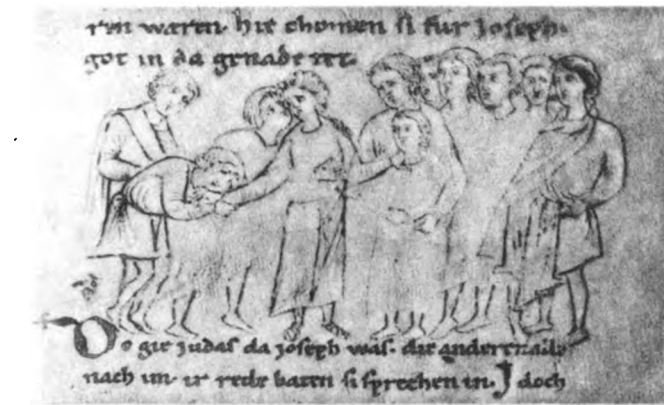 ren waren. hie chomen si fur Joseph.
got in da genade tet.
Do gie judas da joseph was. die
nach im. ir rede baten si sprechen in. J doch